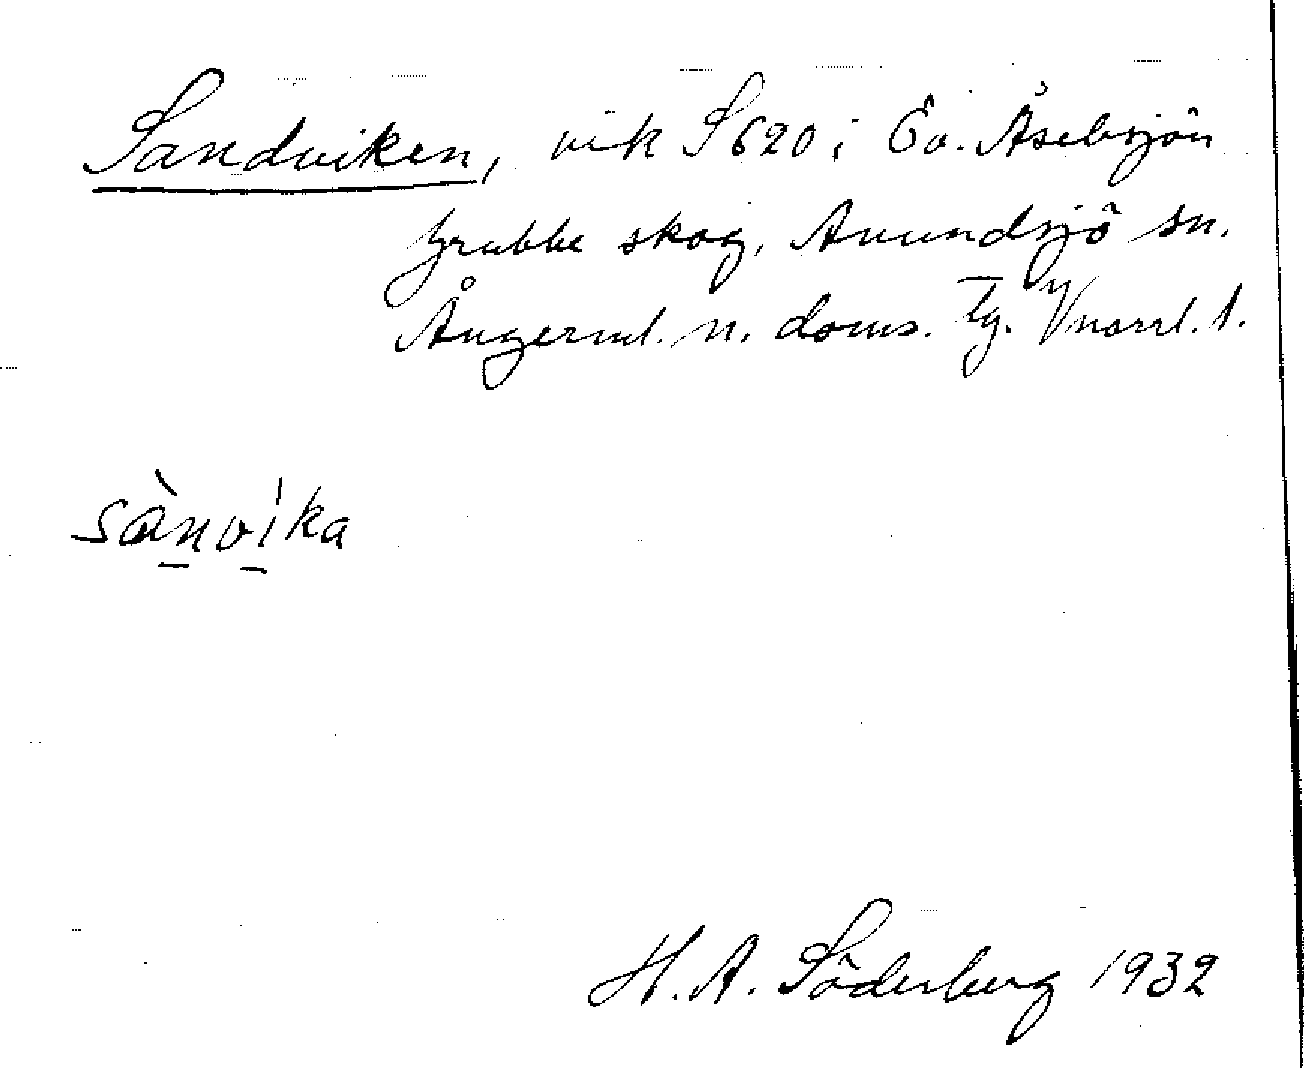 Sandviken, vik S 620 i Ö. Åselsjön
Grubbe skog, Anundsjö sn.
Ångerml. n. doms. Tg. V norrl. 1.
sànvika
H. A. Söderberg 1932